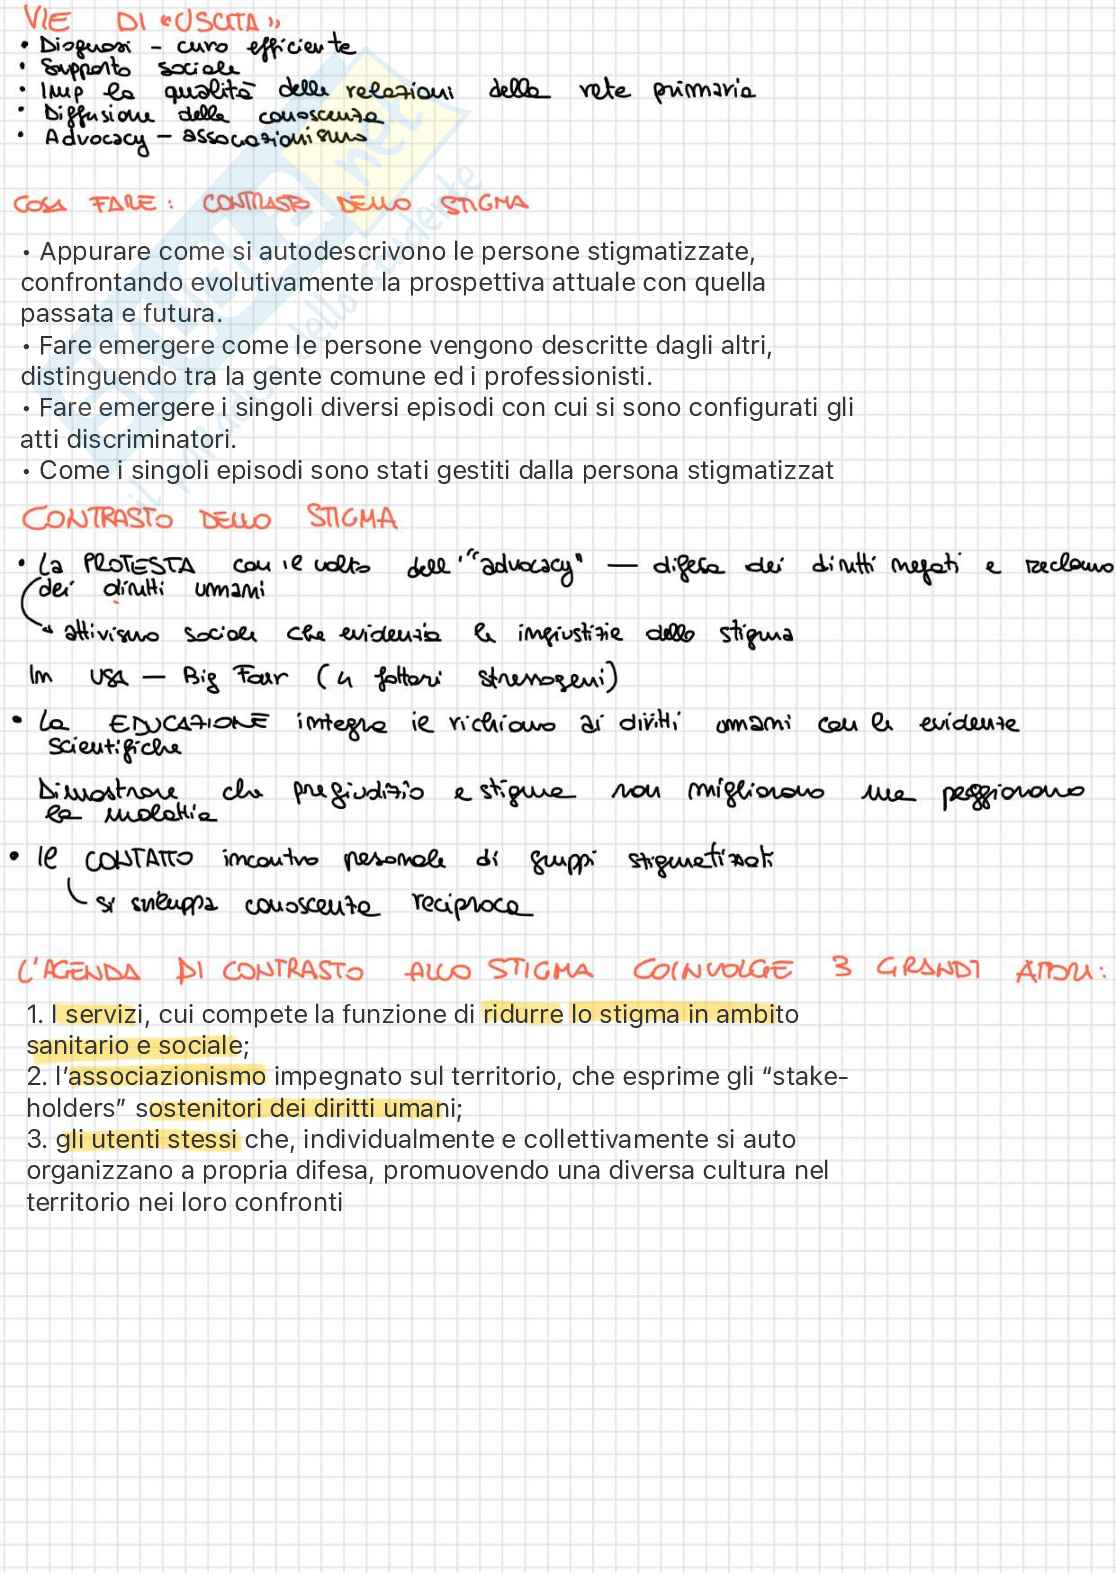 VIE DI "USCITA"
• Diagnosi – cura efficiente
• Supporto sociale
• Imp la qualità delle relazioni della rete primaria
• Diffusione della conoscenza
• Advocacy – associazionismo
COSA FARE: CONTRASTO DELLO STIGMA
• Appurare come si autodescrivono le persone stigmatizzate,
confrontando evolutivamente la prospettiva attuale con quella
passata e futura.
• Fare emergere come le persone vengono descritte dagli altri,
distinguendo tra la gente comune ed i professionisti.
• Fare emergere i singoli diversi episodi con cui si sono configurati gli
atti discriminatori.
• Come i singoli episodi sono stati gestiti dalla persona stigmatizzat
CONTRASTO DELLO STIGMA
• La PROTESTA con il volto dell'"advocacy" — difesa dei diritti negati e reclamo
dei diritti umani
attivismo sociale che evidenzia le ingiustizie dello stigma
In USA — Big Four (4 fattori stressogeni)
• La EDUCAZIONE integra il richiamo ai diritti umani con le evidenze
scientifiche
Dimostrare che pregiudizio e stigma non migliorano ma peggiorano
la malattia
• Il CONTATTO incontro personale di gruppi stigmatizzati
si sviluppa conoscenza reciproca
L'AGENDA DI CONTRASTO ALLO STIGMA COINVOLGE 3 GRANDI ATTORI:
1. I servizi, cui compete la funzione di ridurre lo stigma in ambito
sanitario e sociale;
2. l'associazionismo impegnato sul territorio, che esprime gli "stake-
holders" sostenitori dei diritti umani;
3. gli utenti stessi che, individualmente e collettivamente si auto
organizzano a propria difesa, promuovendo una diversa cultura nel
territorio nei loro confronti